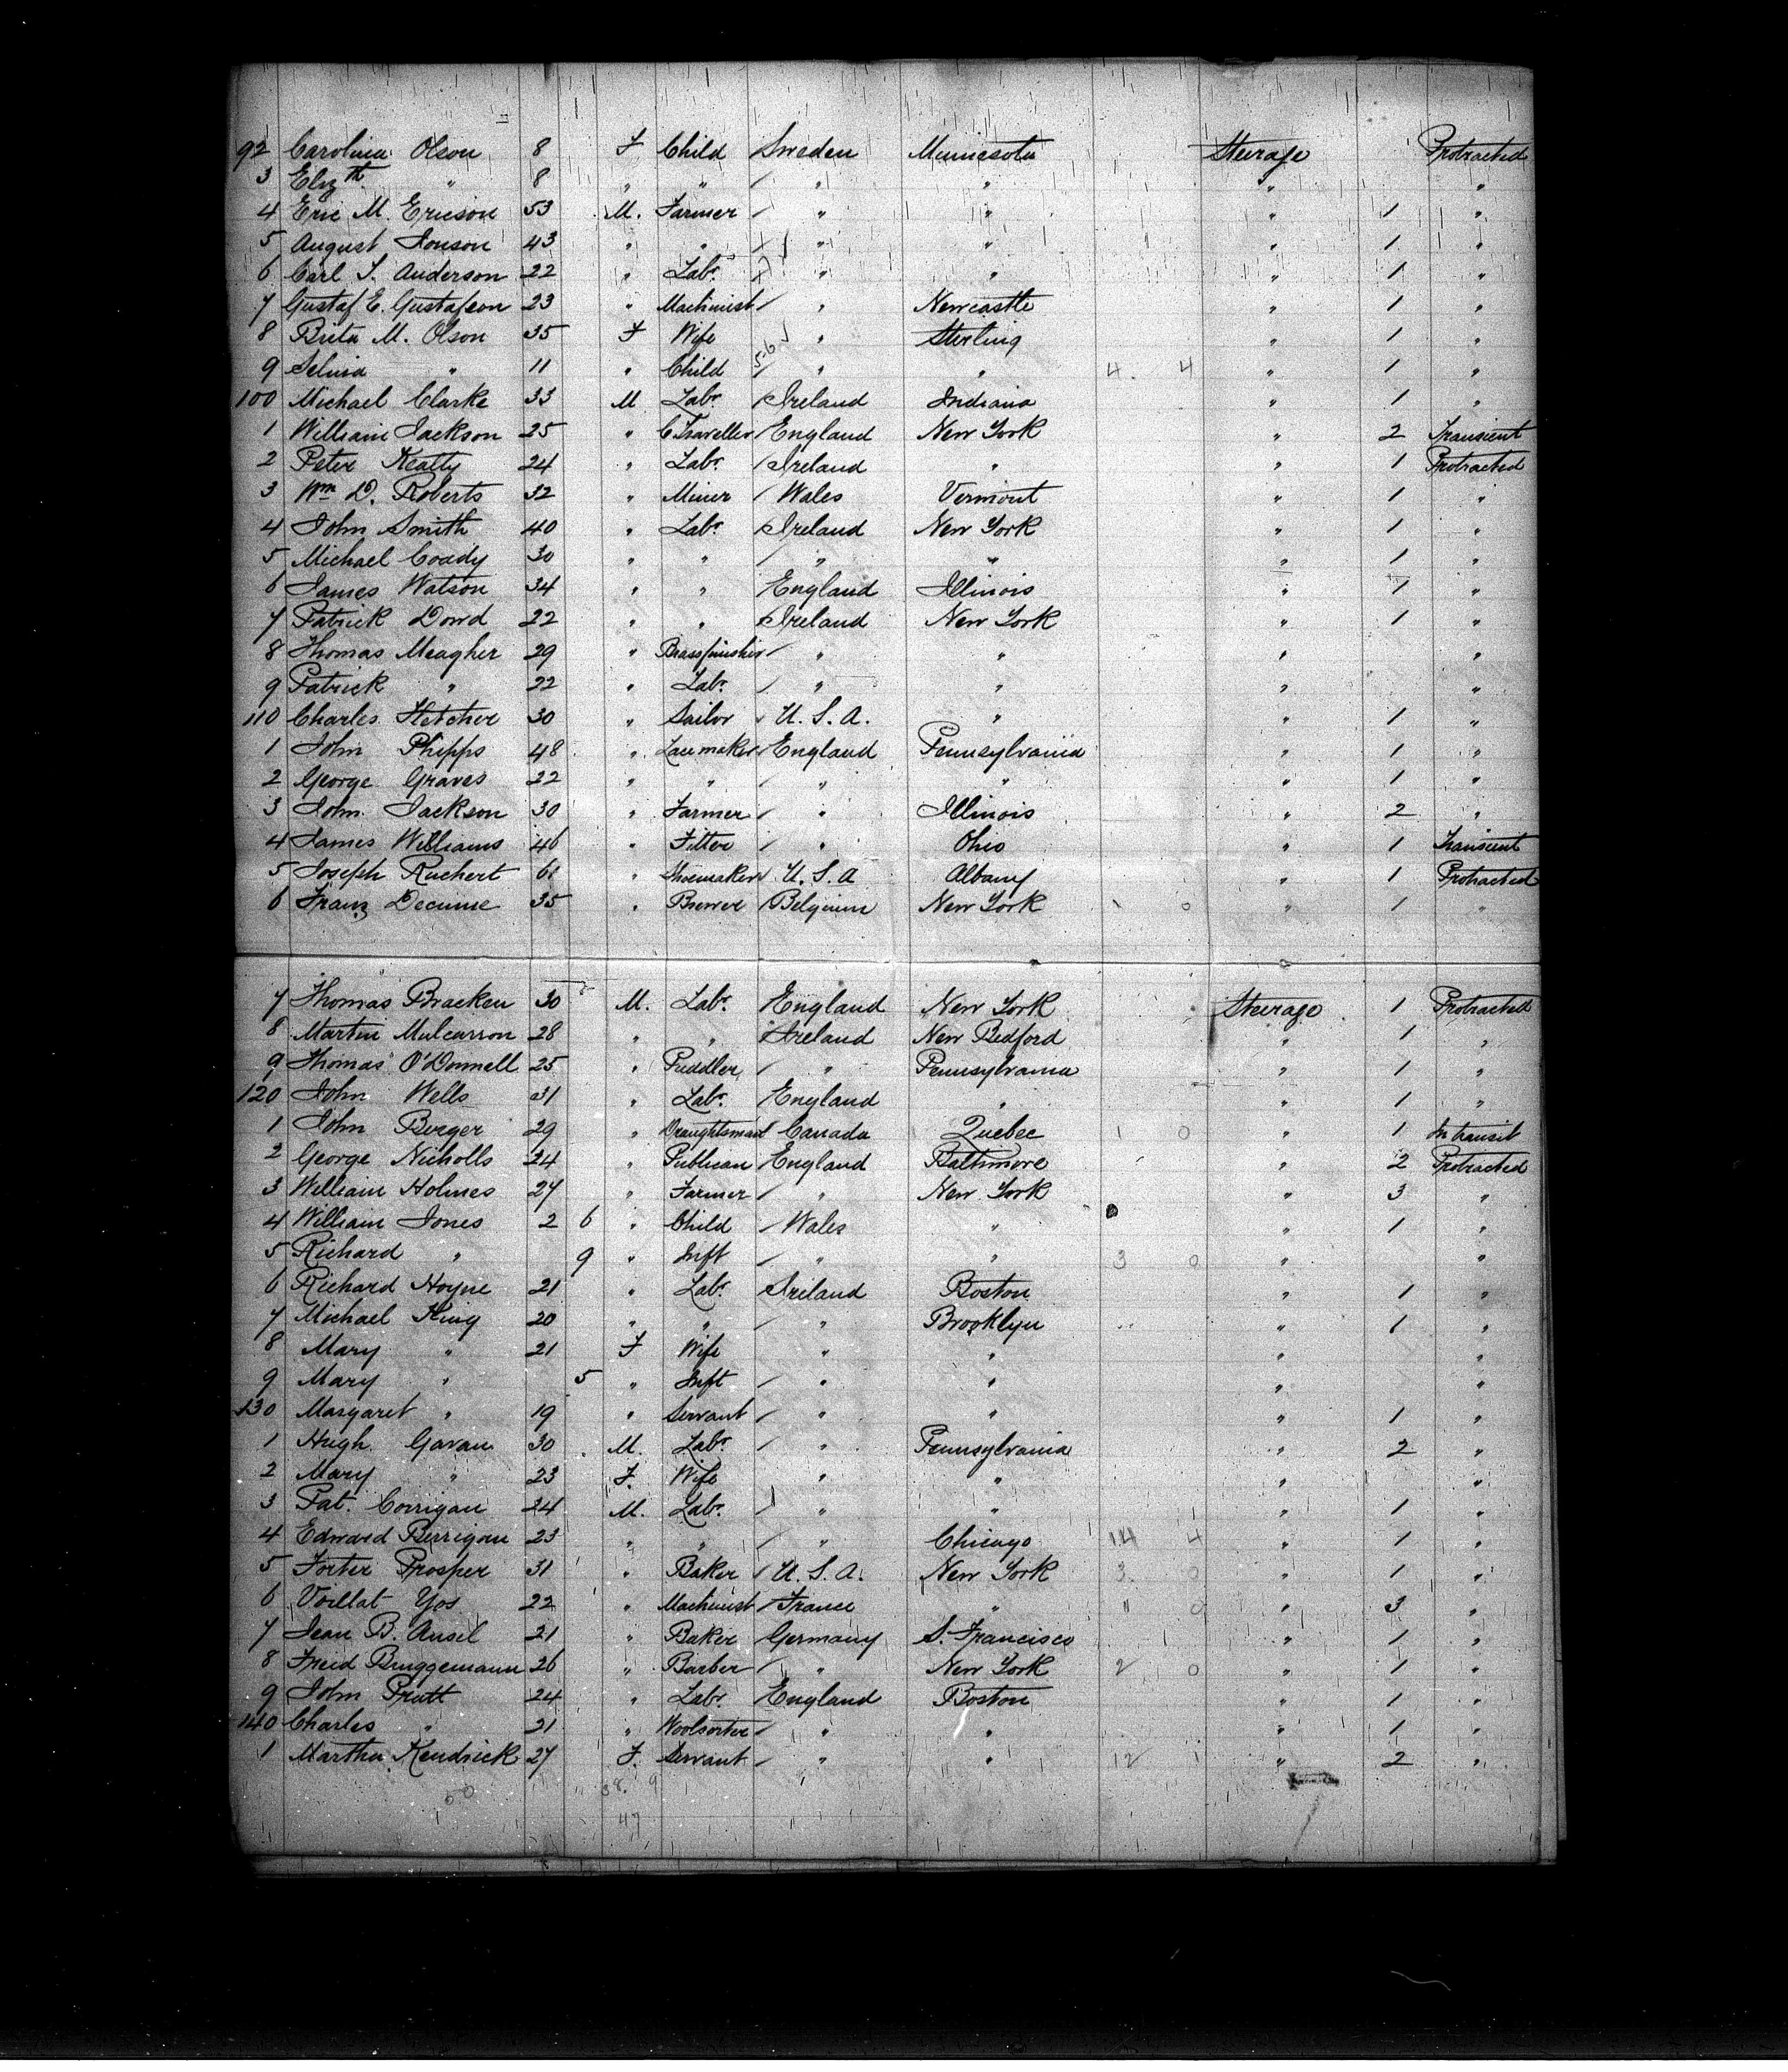 92 Carolina Olson 8 F Child Sweden Minnesota Steerage 1 Protracted
3 Elizth " 8 " " / " " " "
4 Eric M. Ericson 53 M. Farmer / " " " 1 "
5 August Jonson 43 " " / " " " 1 "
6 Carl S. Anderson 22 " Labr. " " " 1 "
7 Gustaf E. Gustafson 23 " Machinist / " Newcastle " 1 "
8 Brita M. Olson 35 F Wife " Sterling " 1 "
9 " 11 " Child / " " 4. 4 " 1 "
100 Michael Clarke 33 M Labr. / Ireland Indiana " 1 "
1 William Jackson 25 " C. Traveller / England New York " 2 Transient
2 Peter Keatty 24 " Labr. / Ireland " " 1 Protracted
3 Wm D. Roberts 32 " Miner / Wales Vermont " 1 "
4 John Smith 40 " Labr. / Ireland New York " 1 "
5 Michael Coady 30 " " / " " " 1 "
6 James Watson 34 " " England Illinois " 1 "
7 Patrick Dowd 22 " " Ireland New York " 1 "
8 Thomas Meagher 29 " Brassfinisher / " " " "
9 Patrick " 22 " Labr. / " " " "
110 Charles Fletcher 30 " Sailor U. S. A. " " 1 "
1 John Phipps 48 " Lacemaker England Pennsylvania " 1 "
2 George Graves 22 " " / " " " 1 "
3 John Jackson 30 " Farmer / " Illinois " 2 "
4 James Williams 46 " Fitter / " Ohio " 1 Transient
5 Joseph Ruchert 61 " Shoemaker U. S. A Albany " 1 Protracted
6 Franz 35 " Brewer / Belgium New York 1 0 " 1 "
7 Thomas Bracken 30 M. Labr. England New York Steerage 1 Protracted
8 Martin Mulcarron 28 " " Ireland New Bedford " 1 "
9 Thomas O'Donnell 25 " Puddler / " Pennsylvania " 1 "
120 John Wells 31 " Labr. England " " 1 "
1 John Berger 29 " Draughtsman Canada Quebec 1 0 " 1 In transit
2 George Nicholls 24 " Publican England Baltimore " 2 Protracted
3 William Holmes 27 " Farmer / " New York " 3 "
4 William Jones 2 6 " Child / Wales " " 1 "
5 Richard " 9 " Inft / " " 3 0 " "
6 Richard Hoyne 21 " Labr. Ireland Boston " 1 "
7 Michael King 20 " " / " Brooklyn " 1 "
8 Mary " 21 F Wife " " " "
9 Mary " 5 " Inft / " " " "
130 Margaret " 19 " Servant / " " " 1 "
1 Hugh Gavan 30 M. Labr. / " Pennsylvania " 2 "
2 Mary " 23 F. Wife " " " "
3 Pat. Corrigan 24 M. Labr. / " " " 1 "
4 Edward Berrigan 23 " " / " Chicago 14 4 " 1 "
5 Forter Prosper 31 " Baker / U. S. A. New York 3 0 " 1 "
6 Voillat Yos 22 " Machinist / France " " 0 " 3 "
7 Jean B. Ansel 21 " Baker Germany S. Francisco " 1 "
8 Fried Bruggemann 26 " Barber / " New York 2 0 " 1 "
9 John Pratt 24 " Labr. England Boston " 1 "
140 Charles " 21 " Woolsorter / " " " 1 "
1 Martha Kendrick 27 F. Servant / " " 12 1 " 2 "
50 38. 9
47